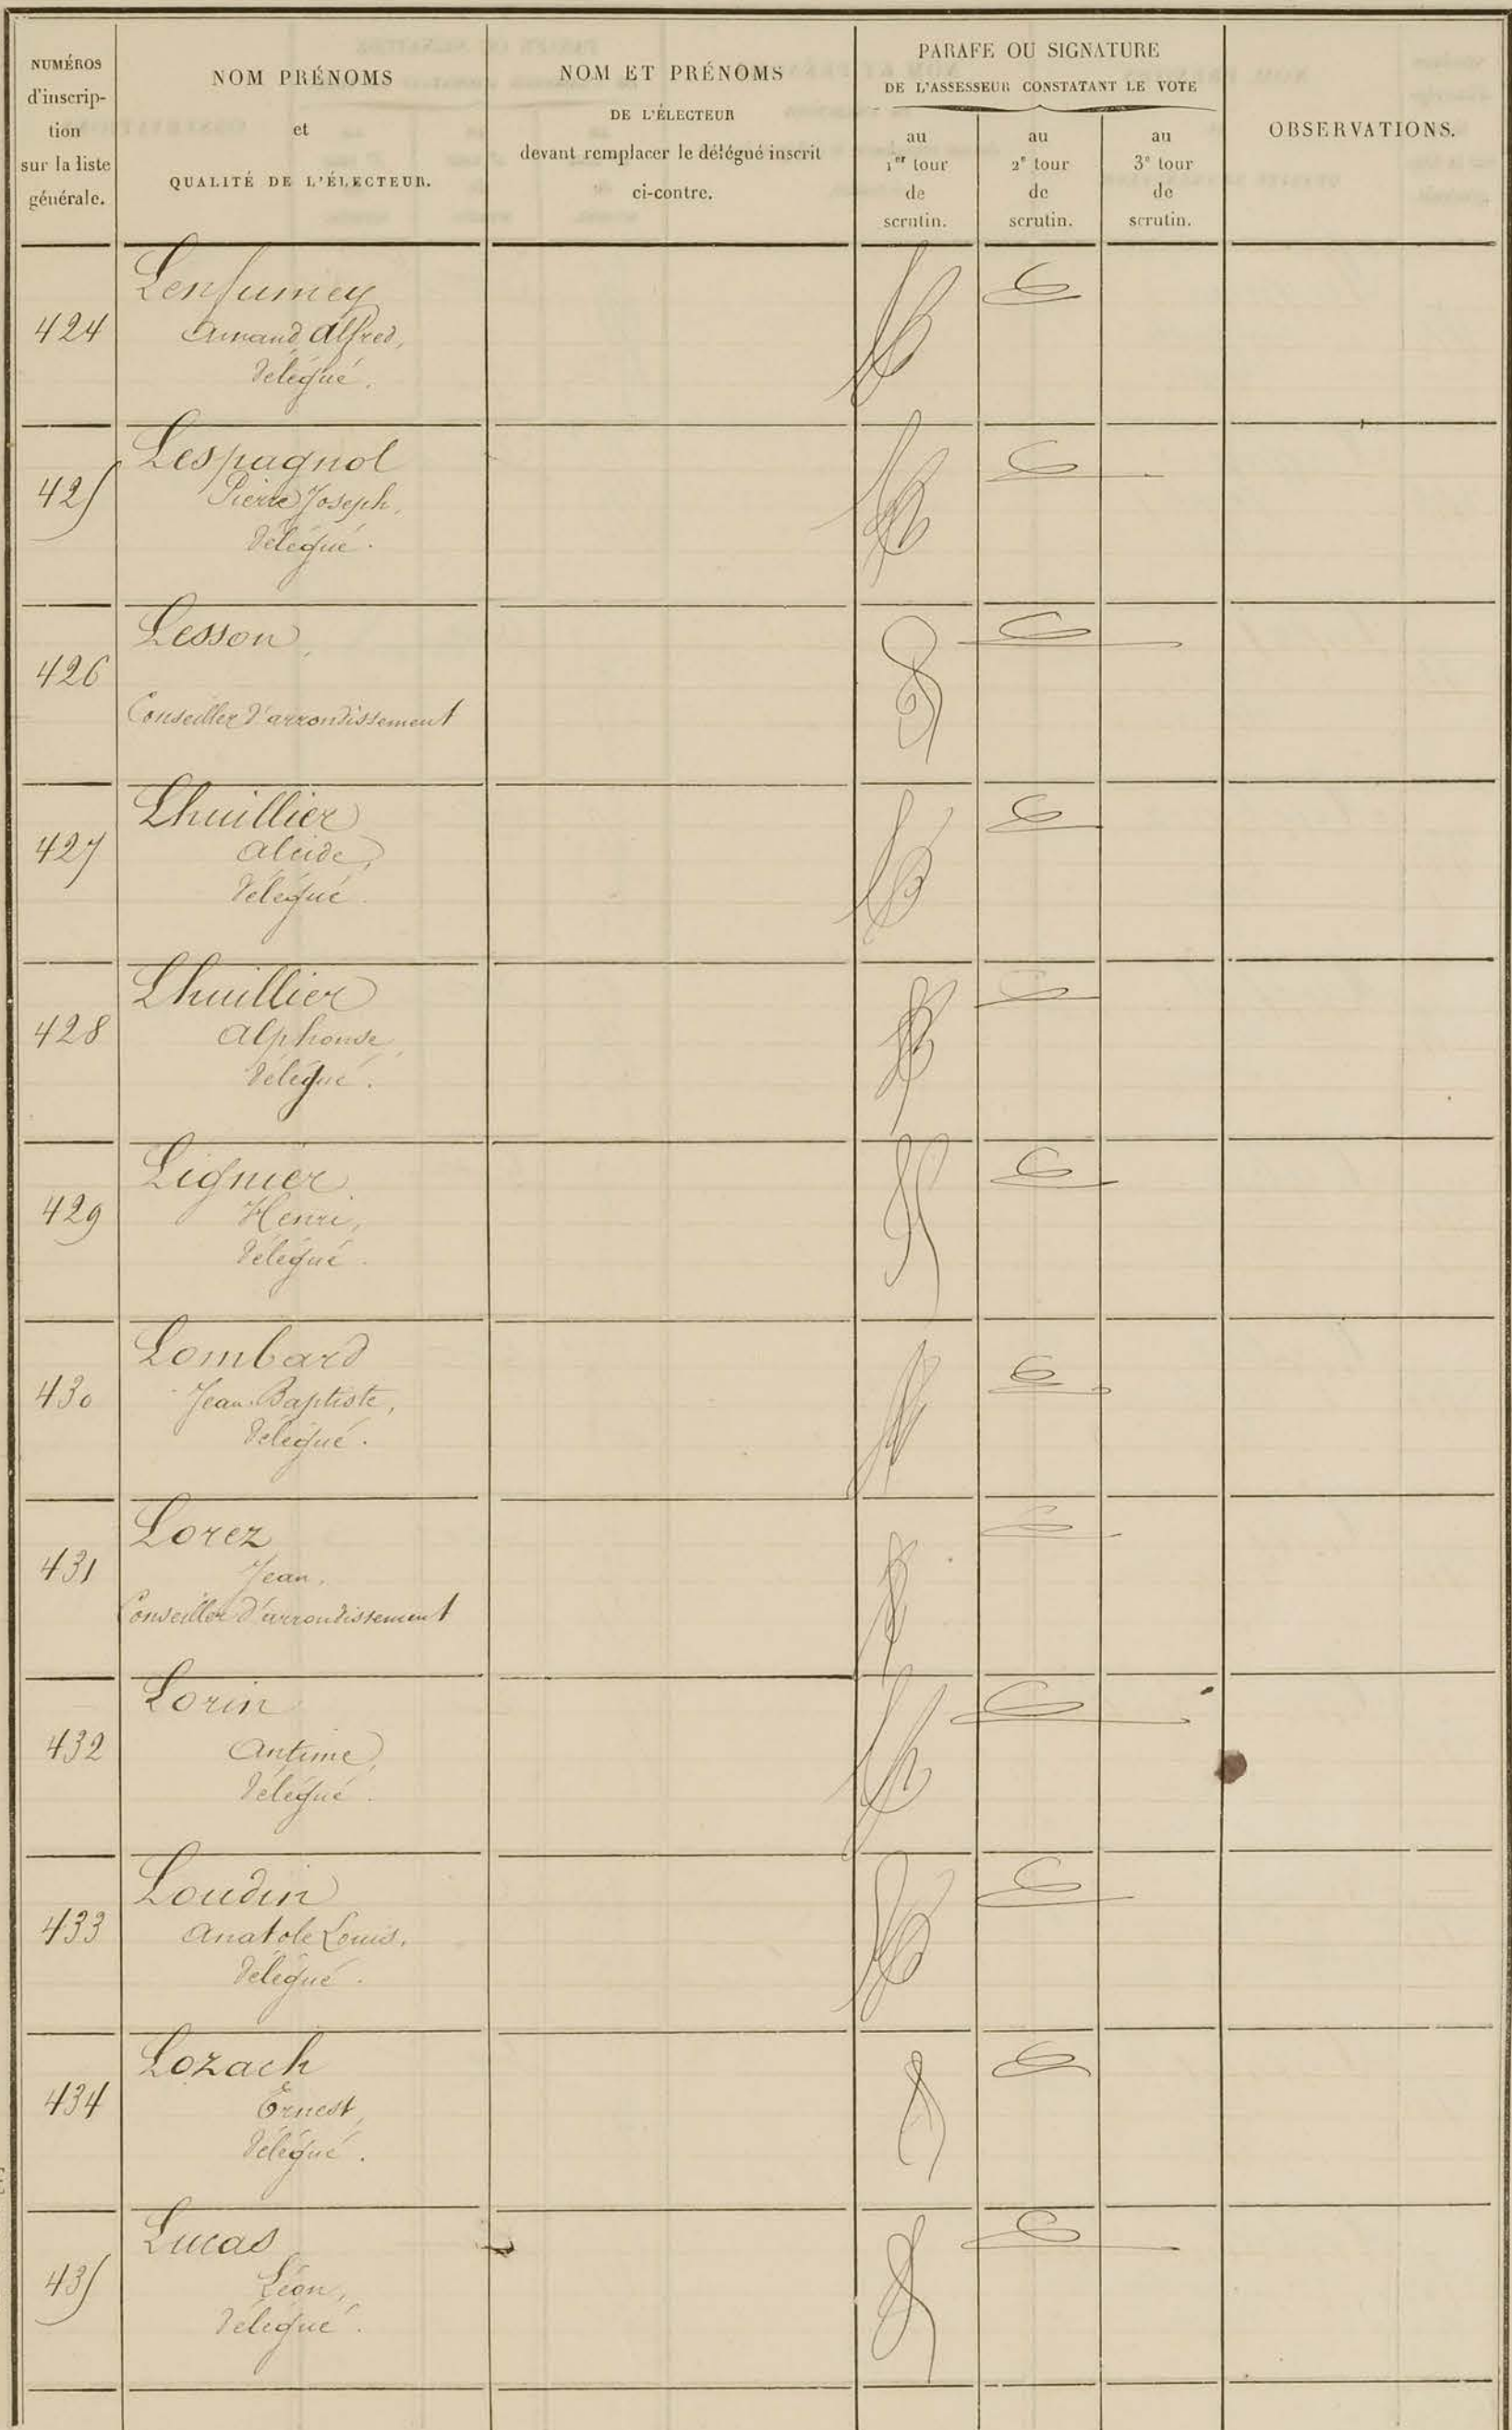 NUMÉROS
d'inscrip-
tion
sur la liste
générale.
NOM PRÉNOMS
et
QUALITÉ DE L'ÉLECTEUR.
NOM ET PRÉNOMS
DE L'ÉLECTEUR
devant remplacer le délégué inscrit
ci-contre.
PARAFE OU SIGNATURE
DE L'ASSESSEUR CONSTATANT LE VOTE
au
1er tour
de
scrutin.
au
2e tour
de
scrutin.
au
3e tour
de
scrutin.
OBSERVATIONS.
424
Lenfumey
Amand Alfred,
délégué.
425
Lespagnol
Pierre Joseph,
délégué.
426
Lesson,
Conseiller d'arrondissement
427
Lhuillier
Alcide,
délégué.
428
Lhuillier
Alphonse,
délégué.
429
Lignier
Henri,
délégué.
430
Lombard
Jean-Baptiste,
délégué.
431
Lorez
Jean,
Conseiller d'arrondissement
432
Lorin
Antime,
délégué.
433
Loudin
Anatole Louis,
délégué.
434
Lozach
Ernest,
délégué.
435
Lucas
Léon,
délégué.